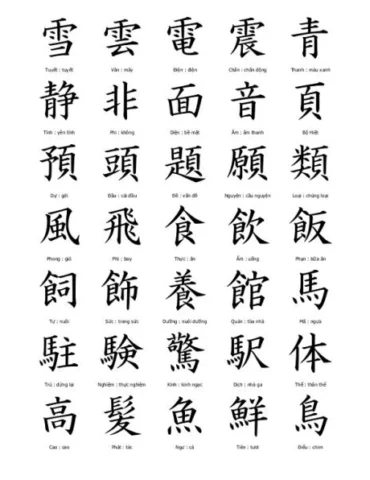 雪 雲 電 震 青
Tuyết : tuyết Vân : mây Điện : điện Chấn : chấn động Thanh : màu xanh
静 非 面 音 頁
Tĩnh : yên tĩnh Phi : không Diện : bề mặt Âm : âm thanh Bộ Hiệt
預 頭 題 願 類
Dự : gửi Đầu : cái đầu Đề : vấn đề Nguyện : cầu nguyện Loại : chủng loại
風 飛 食 飲 飯
Phong : gió Phi : bay Thực : ăn Ẩm : uống Phạn : bữa ăn
飼 飾 養 館 馬
Tự : nuôi Sức : trang sức Dưỡng : nuôi dưỡng Quán : tòa nhà Mã : ngựa
駐 験 驚 駅 体
Trú : dừng lại Nghiệm : thực nghiệm Kinh : kinh ngạc Dịch : nhà ga Thể : thân thể
高 髪 魚 鮮 鳥
Cao : cao Phát : tóc Ngư : cá Tiên : tươi Điểu : chim